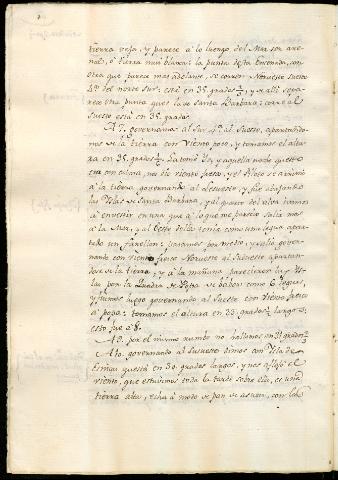 tierra roja, y parece á lo luengo del Mar ser are-
nal, ó tierra muy blanca: la punta desta Ensenada, con
otra que parece mas adelante, se corren Norueste Sueste
4ª. del norte sur: está en 35. grados ⅓, y de alli se pa-
rece otra punta que es la de Santa Barbara: corre al
Sueste está en 35. grados.
A 7. governamos al Sur 4ª. al Sueste, apartando-
nos de la tierra con Viento poco, y tomamos el altu-
ra en 35. grados
y aquella noche questo
que con calma, nos dio viento fresco, y el Piloto se arrimó
á la tierra, governando al Lesueste, y fue abajando
las Yslas de Santa Barbara, y al quarto del alva ivamos
á envestir en una que á lo que me parecio salia mas
á la Mar, y al Oeste della tenia como una legua apar-
tado un farellon: pasamos por medio, y salio gover-
nando con viento fresco Norueste al Sueste apartan-
dose de la tierra; y á la mañana parecieron las Ys-
las por la Quadra de Popa de babor como 6. leguas,
y fuimos luego governando al Sueste con viento fresco
á popa: tomamos el altura en 33. grados
largos,
esto fue á 8.
A 9. por el mismo rumbo nos hallamos en 31 grados ⅔
A 10. governando al Susueste dimos con Ysla de
que está en 30. grados largos, y nos aflojó el
viento, que estuvimos toda la tarde sobre ella, es una
tierra alta, echa á modo de pan de azucar, con